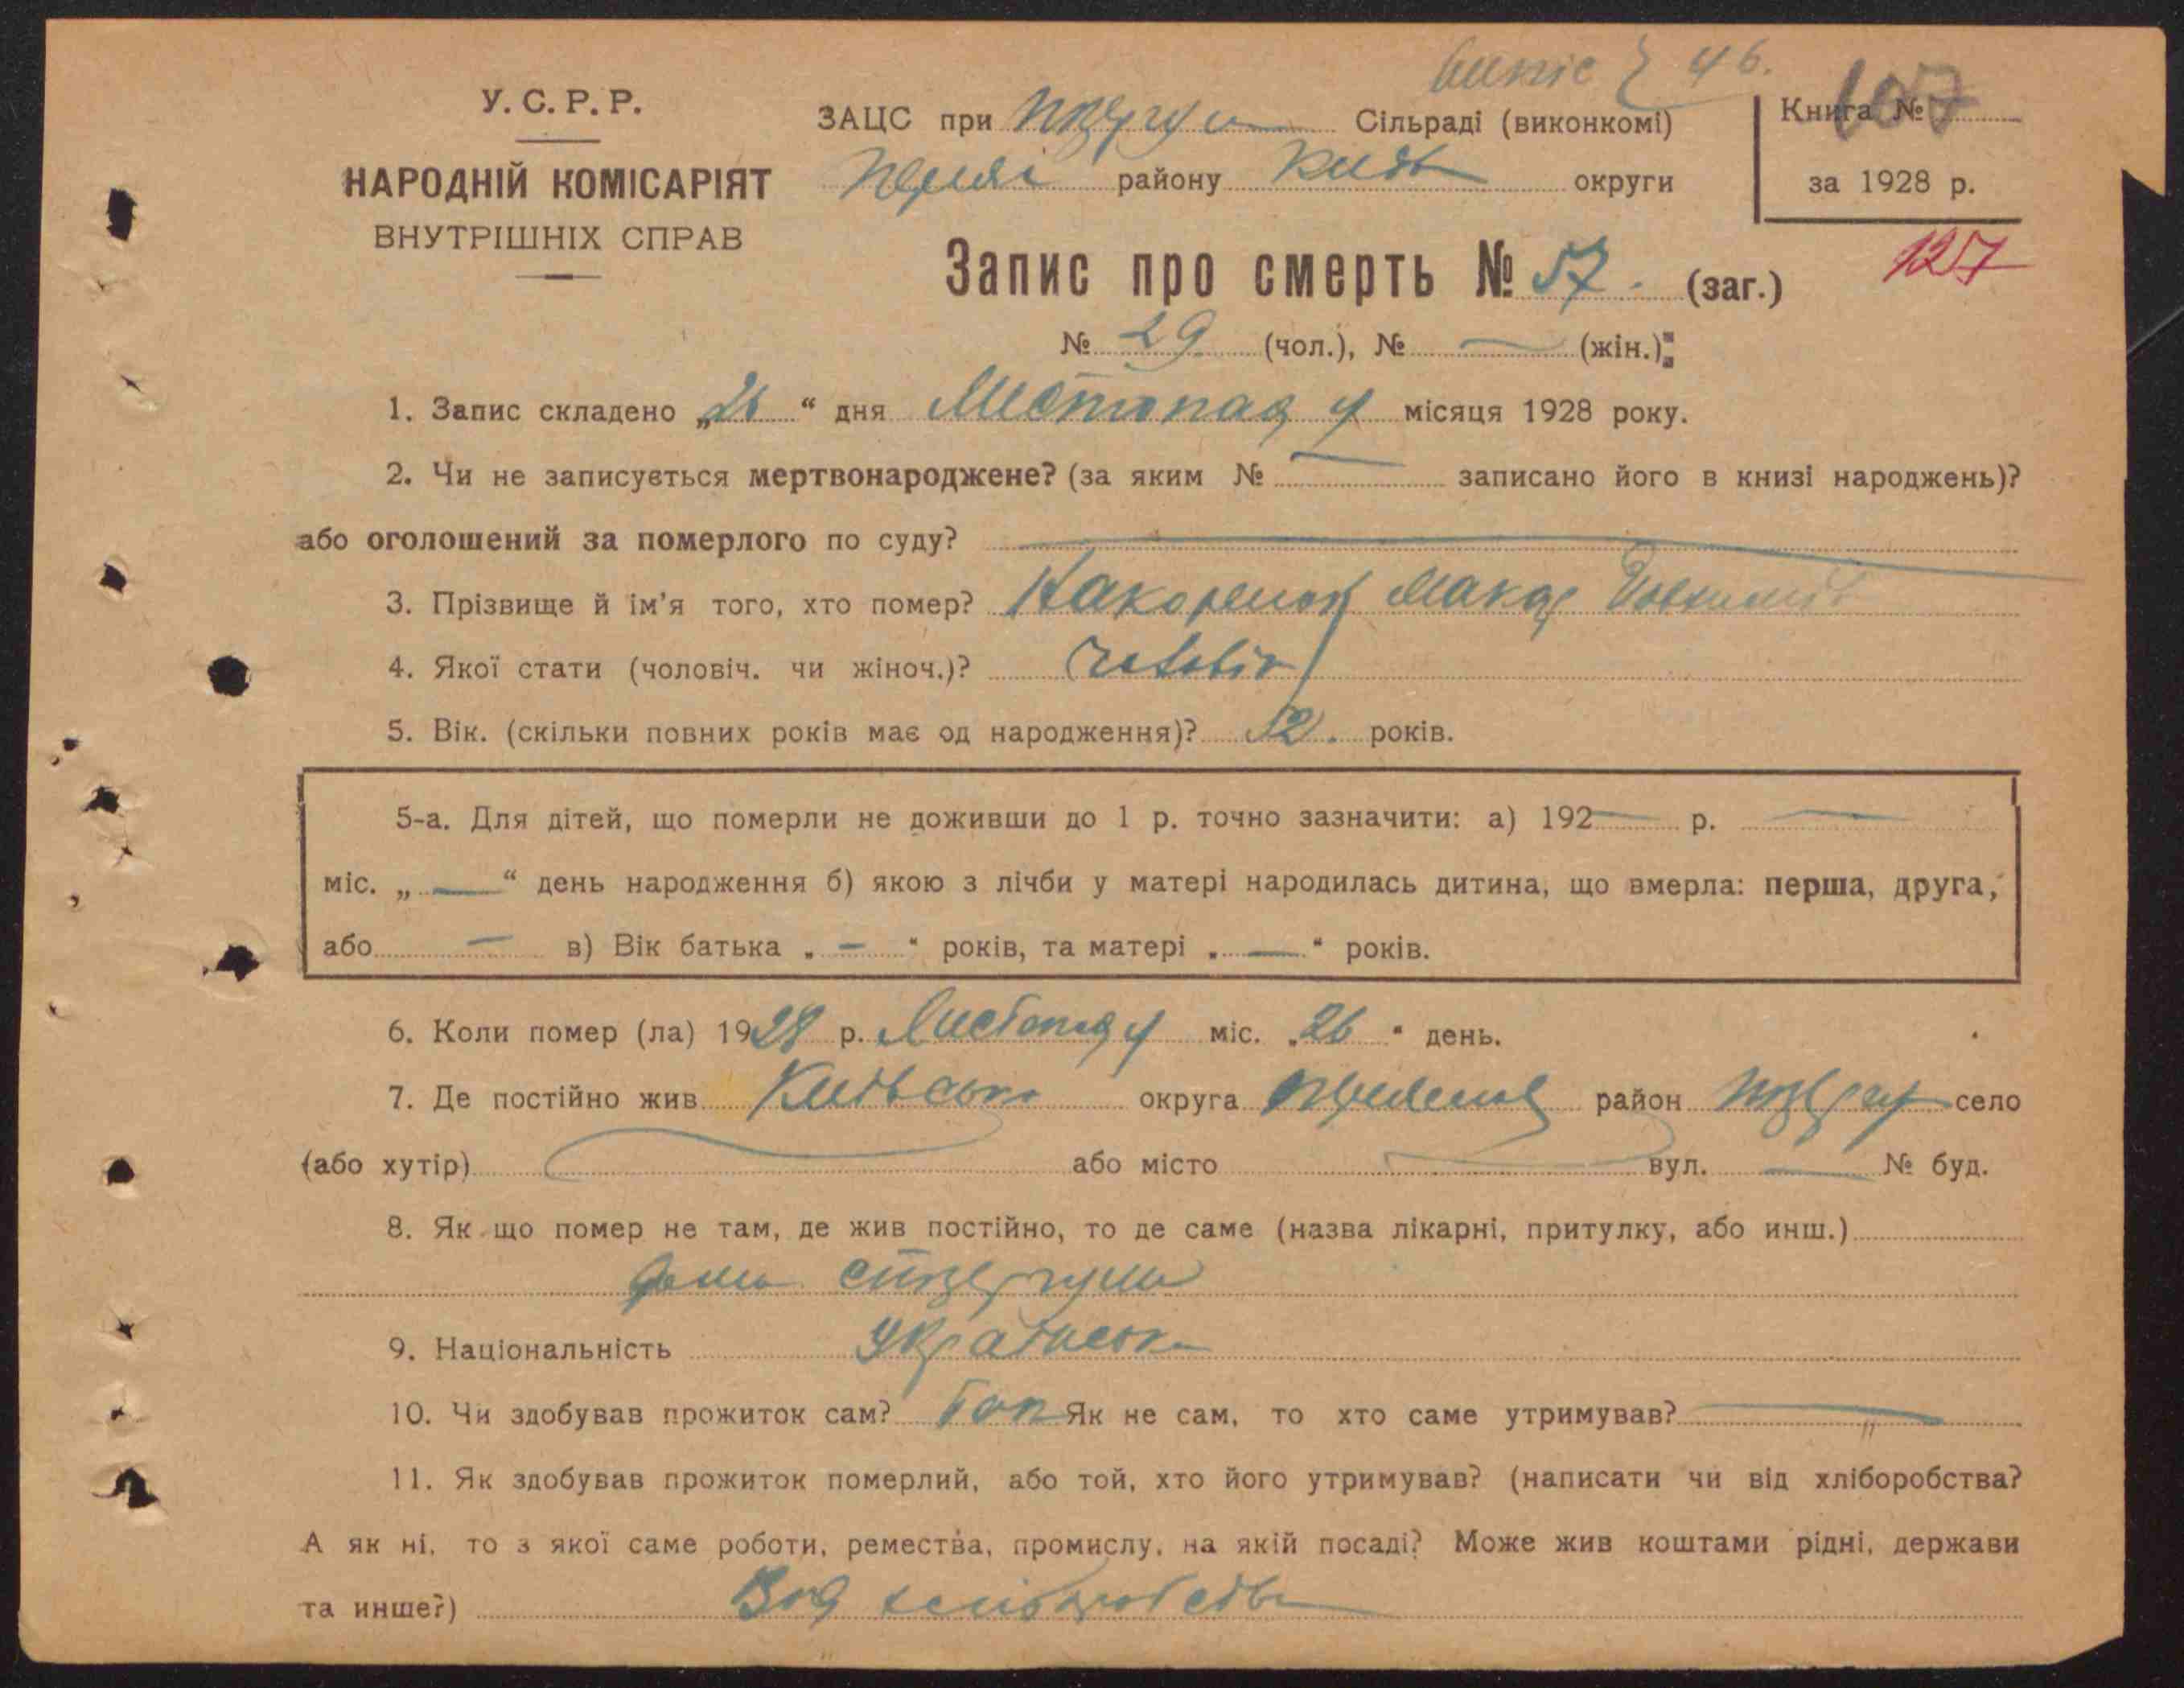 У. С. Р. Р.
НАРОДНІЙ КОМІСАРІЯТ
ВНУТРІШНІХ СПРАВ
46.
ЗАЦС при Сільраді (виконкомі)
району Київ округи
Книга № 107
за 1928 р.
127
Запис про смерть № 57. (заг.)
№ 29 (чол.), № — (жін.);
1. Запис складено „26“ дня Листопаду місяця 1928 року.
2. Чи не записується мертвонароджене? (за яким № — записано його в книзі народжень)?
або оголошений за померлого по суду? —
3. Прізвище й ім'я того, хто помер? Макар
4. Якої стати (чоловіч. чи жіноч.)? чоловіч
5. Вік. (скільки повних років має од народження)? 52. років.
5-а. Для дітей, що померли не доживши до 1 р. точно зазначити: а) 192— р. —
міс. „—“ день народження б) якою з лічби у матері народилась дитина, що вмерла: перша, друга,
або — в) Вік батька „—“ років, та матері „—“ років.
6. Коли помер (ла) 1928 р. Листопаду міс. „26“ день.
7. Де постійно жив Київська округа район село
(або хутір) — або місто — вул. — № буд.
8. Як що помер не там, де жив постійно, то де саме (назва лікарні, притулку, або инш.)
9. Національність Українська
10. Чи здобував прожиток сам? Так Як не сам, то хто саме утримував? —
11. Як здобував прожиток померлий, або той, хто його утримував? (написати чи від хліборобства?
А як ні, то з якої саме роботи, ремества, промислу, на якій посаді? Може жив коштами рідні, держави
та инше?) Від хліборобства